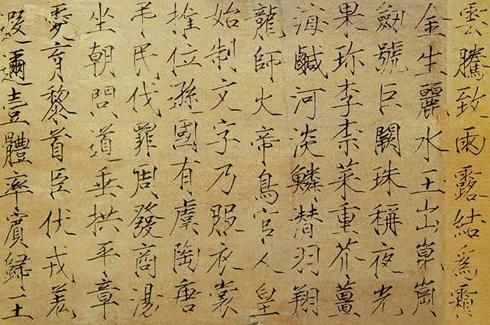 雲騰致雨露結爲霜
金生麗水玉出崑崗
劍號巨闕珠稱夜光
果珎李柰菜重芥薑
海鹹河淡鱗潛羽翔
龍師火帝鳥官人皇
始制文字乃服衣裳
推位遜國有虞陶唐
弔民伐罪周發商湯
坐朝問道垂拱平章
愛育黎首臣伏戎羌
遐邇壹體率賓歸王